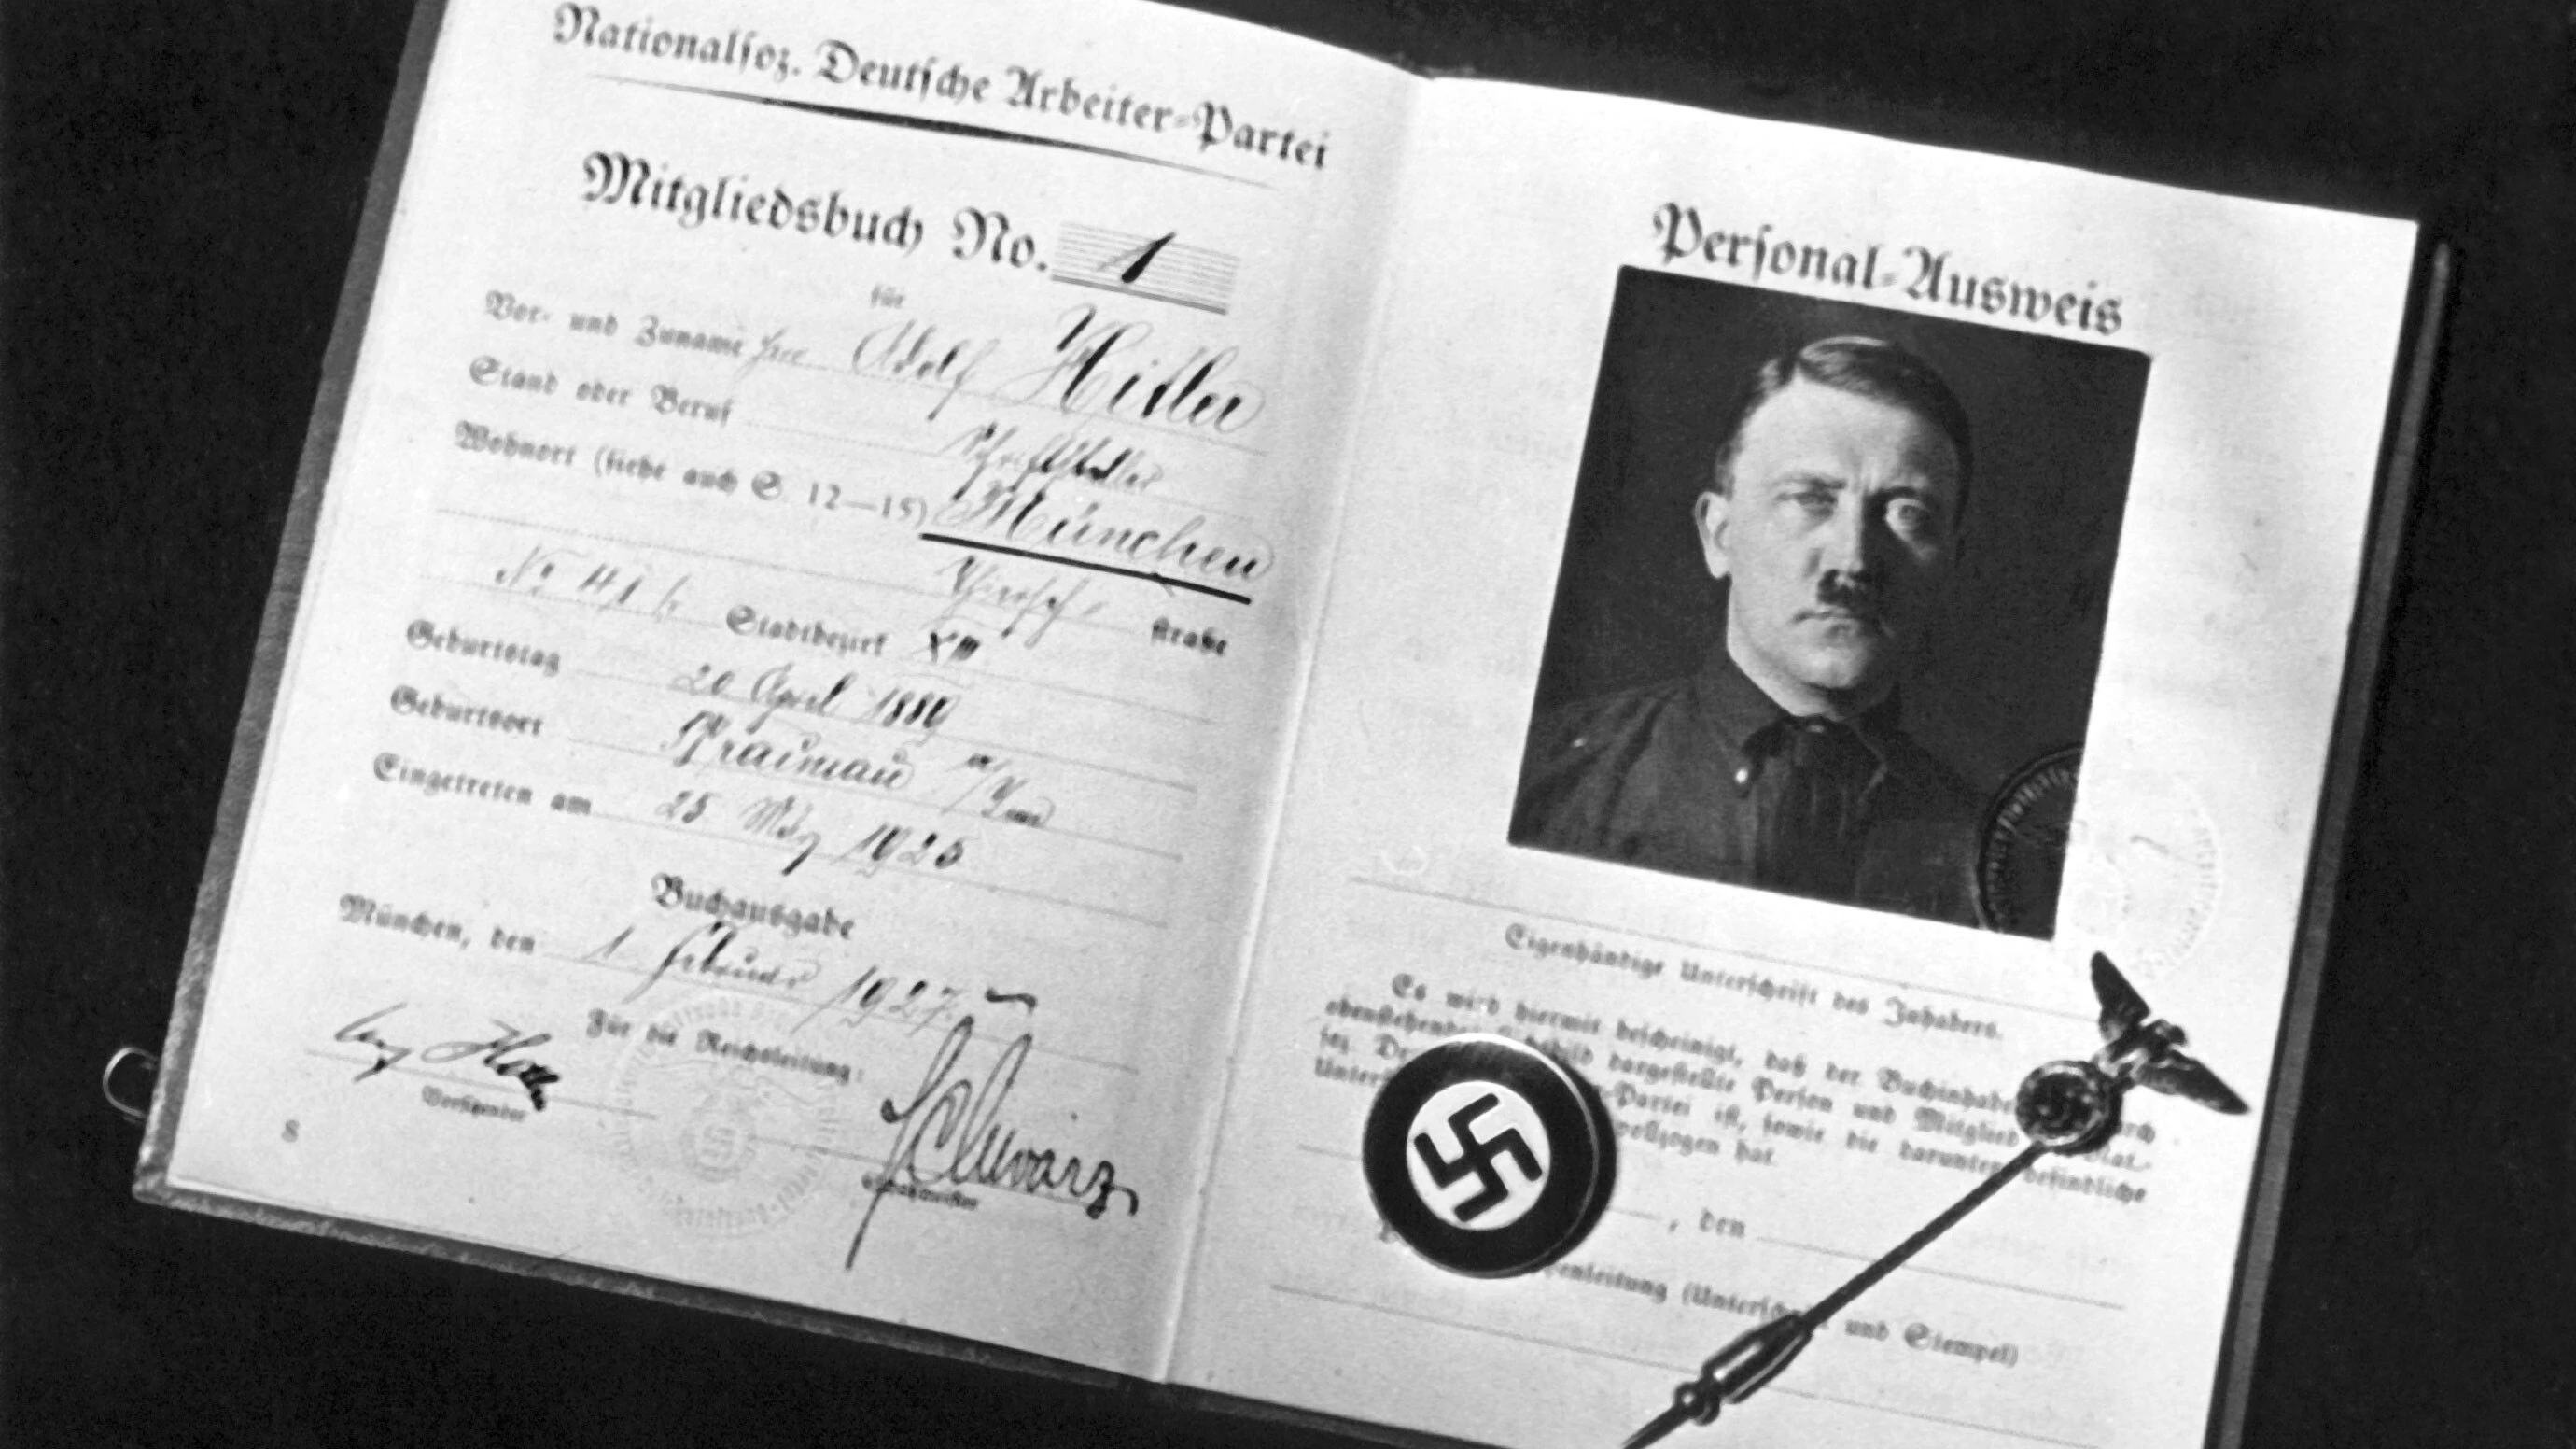 Nationalsoz. Deutsche Arbeiter-Partei
Mitgliedsbuch No. 1
für
Vor- und Zuname Herr Adolf Hitler
Stand oder Beruf Schriftsteller
Wohnort (siehe auch S. 12—15) München
Thiersch straße
No 41 Stadtbezirk XIII
Geburtstag 20 April 1889
Geburtsort Braunau a/Inn
Eingetreten am 25 März 1925
Buchausgabe
München, den 1. Februar 1927.
Für die Reichsleitung:
Schwarz
Vorsitzender
8
Personal-Ausweis
Eigenhändige Unterschrift des Inhabers.
Es wird hiermit bescheinigt, daß der Buchinhaber
obenstehendes dargestellte Person und Mitglied
-Partei ist, sowie die darunter befindliche
vollzogen hat.
, den
und Stempel)